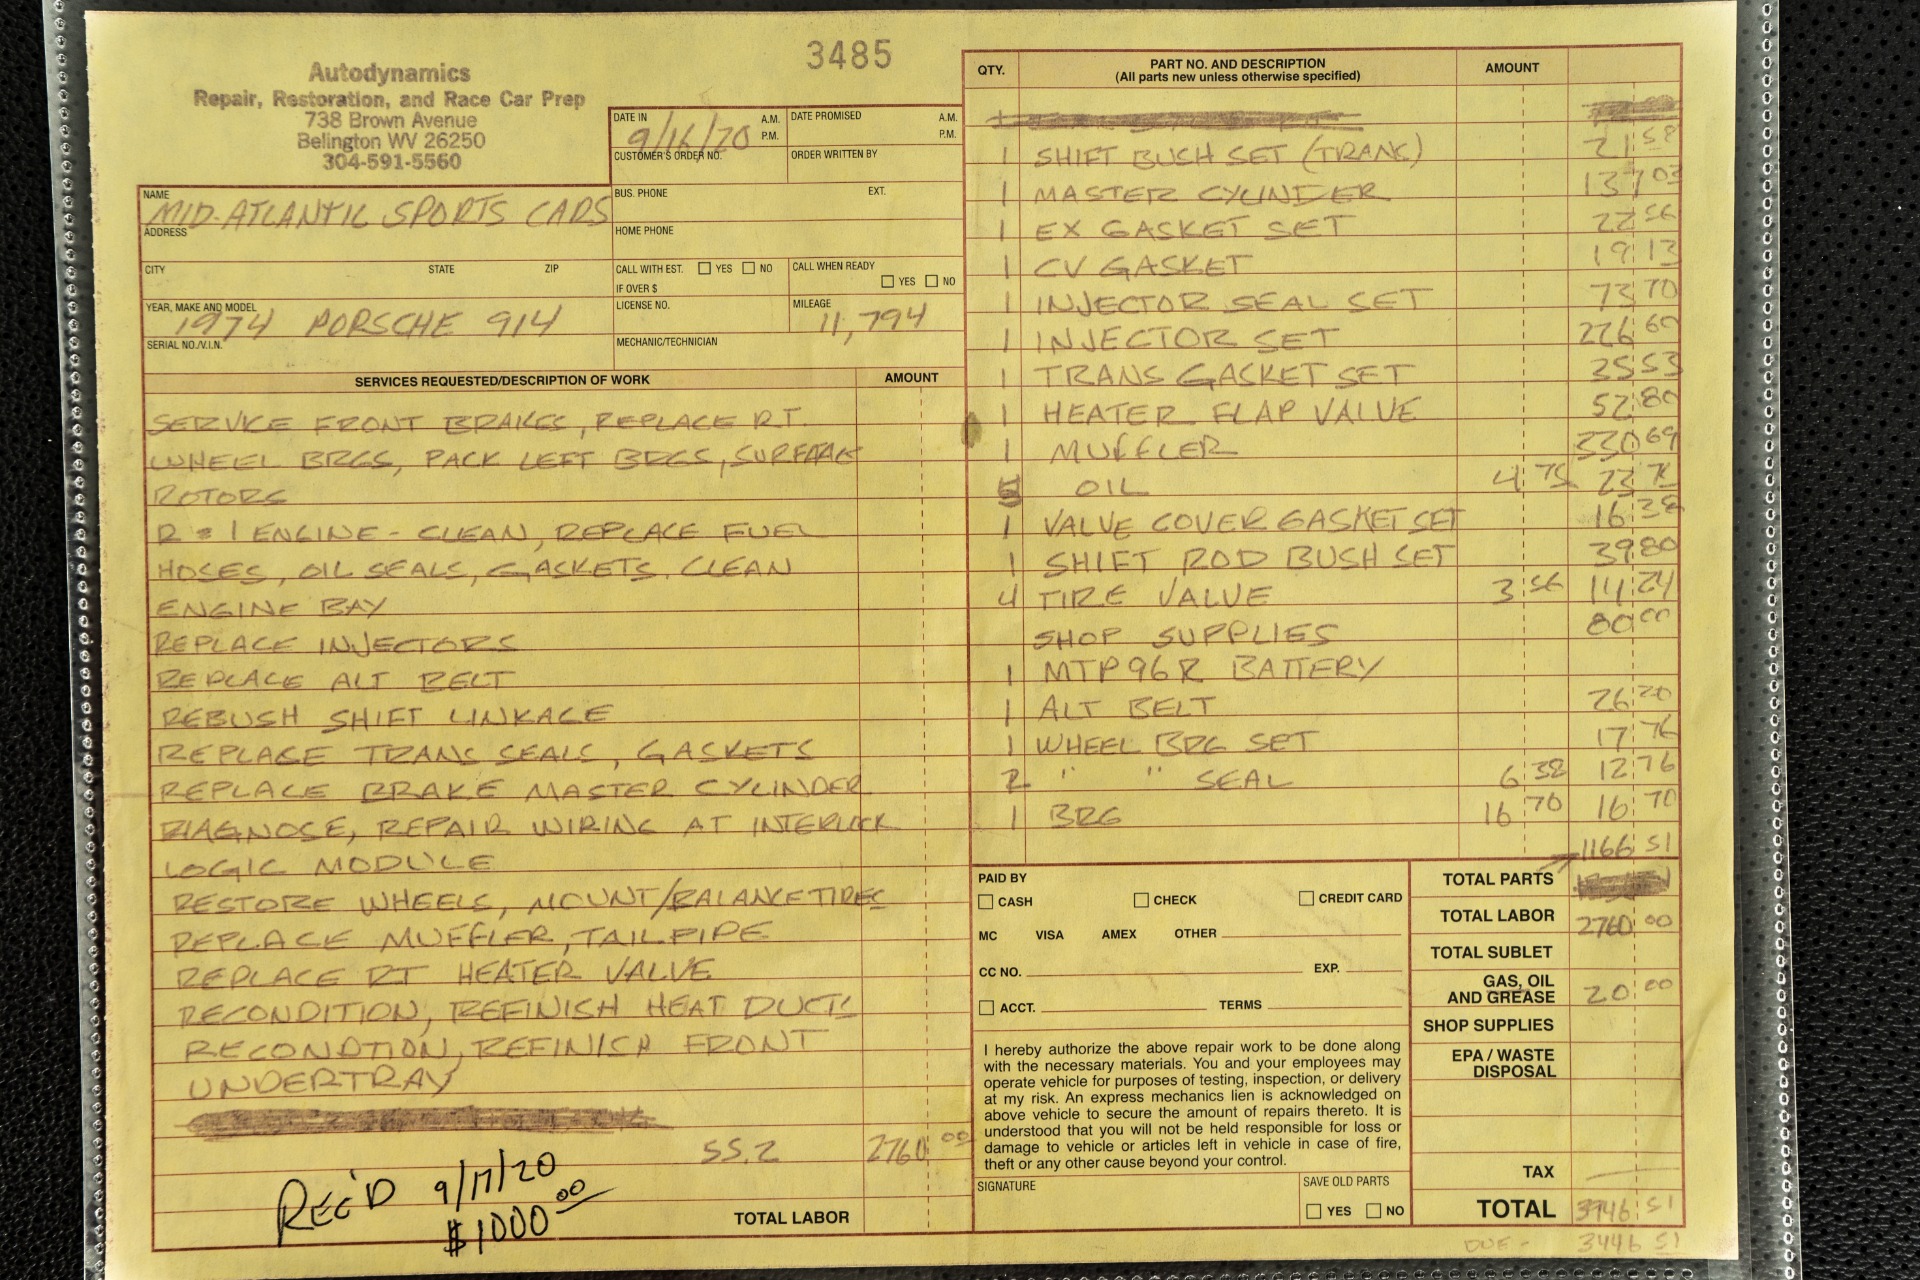 3485
Autodynamics
Repair, Restoration, and Race Car Prep
738 Brown Avenue
Belington WV 26250
304-591-5560
DATE IN 9/16/20 A.M. P.M.
DATE PROMISED A.M. P.M.
CUSTOMER'S ORDER NO.
ORDER WRITTEN BY
NAME MID-ATLANTIC SPORTS CARS
BUS. PHONE EXT.
ADDRESS
HOME PHONE
CITY STATE ZIP
CALL WITH EST. YES NO
IF OVER $
CALL WHEN READY
YES NO
YEAR, MAKE AND MODEL 1974 PORSCHE 914
LICENSE NO.
MILEAGE 11,794
SERIAL NO./V.I.N.
MECHANIC/TECHNICIAN
SERVICES REQUESTED/DESCRIPTION OF WORK AMOUNT
SERVICE FRONT BRAKES, REPLACE RT.
WHEEL BRGS, PACK LEFT BRGS, SURFACE
ROTORS
R & I ENGINE - CLEAN, REPLACE FUEL
HOSES, OIL SEALS, GASKETS. CLEAN
ENGINE BAY
REPLACE INJECTORS
REPLACE ALT BELT
REBUSH SHIFT LINKAGE
REPLACE TRANS SEALS, GASKETS
REPLACE BRAKE MASTER CYLINDER
DIAGNOSE, REPAIR WIRING AT INTERLOCK
LOGIC MODULE
RESTORE WHEELS, MOUNT/BALANCE TIRES
REPLACE MUFFLER, TAILPIPE
REPLACE RT HEATER VALVE
RECONDITION, REFINISH HEAT DUCTS
RECONDTION, REFINISH FRONT
UNDERTRAY
55.2 2760 00
REC'D 9/17/20
$1000 00
TOTAL LABOR
QTY. PART NO. AND DESCRIPTION AMOUNT
(All parts new unless otherwise specified)
1 SHIFT BUSH SET (TRANS) 21 58
1 MASTER CYLINDER 137 03
1 EX GASKET SET 22 56
1 CV GASKET 19 13
1 INJECTOR SEAL SET 73 70
1 INJECTOR SET 226 60
1 TRANS GASKET SET 35 53
1 HEATER FLAP VALVE 52 80
1 MUFFLER 330 69
5 OIL 4 75 23 75
1 VALVE COVER GASKET SET 16 38
1 SHIFT ROD BUSH SET 39 80
4 TIRE VALVE 3 56 14 24
SHOP SUPPLIES 80 00
1 MTP96R BATTERY
1 ALT BELT 26 20
1 WHEEL BRG SET 17 76
2 " " SEAL 6 38 12 76
1 BRG 16 70 16 70
1166 51
PAID BY
CASH CHECK CREDIT CARD
MC VISA AMEX OTHER
CC NO. EXP.
ACCT. TERMS
TOTAL PARTS
TOTAL LABOR 2760 00
TOTAL SUBLET
GAS, OIL
AND GREASE 20 00
SHOP SUPPLIES
EPA / WASTE
DISPOSAL
I hereby authorize the above repair work to be done along
with the necessary materials. You and your employees may
operate vehicle for purposes of testing, inspection, or delivery
at my risk. An express mechanics lien is acknowledged on
above vehicle to secure the amount of repairs thereto. It is
understood that you will not be held responsible for loss or
damage to vehicle or articles left in vehicle in case of fire,
theft or any other cause beyond your control.
SIGNATURE
SAVE OLD PARTS
YES NO
TAX
TOTAL 3946 51
DUE - 3446 51